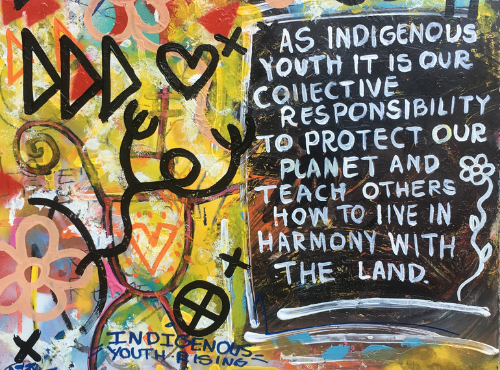 AS INDIGENOUS
YOUTH IT IS OUR
COllECTIVE
RESPONSIBILITY
TO PROTECT OUR
PLANET AND
TEACH OTHERS
HOW TO LIVE IN
HARMONY WITH
THE LAND.
INDIGENOUS
YOUTH RISING